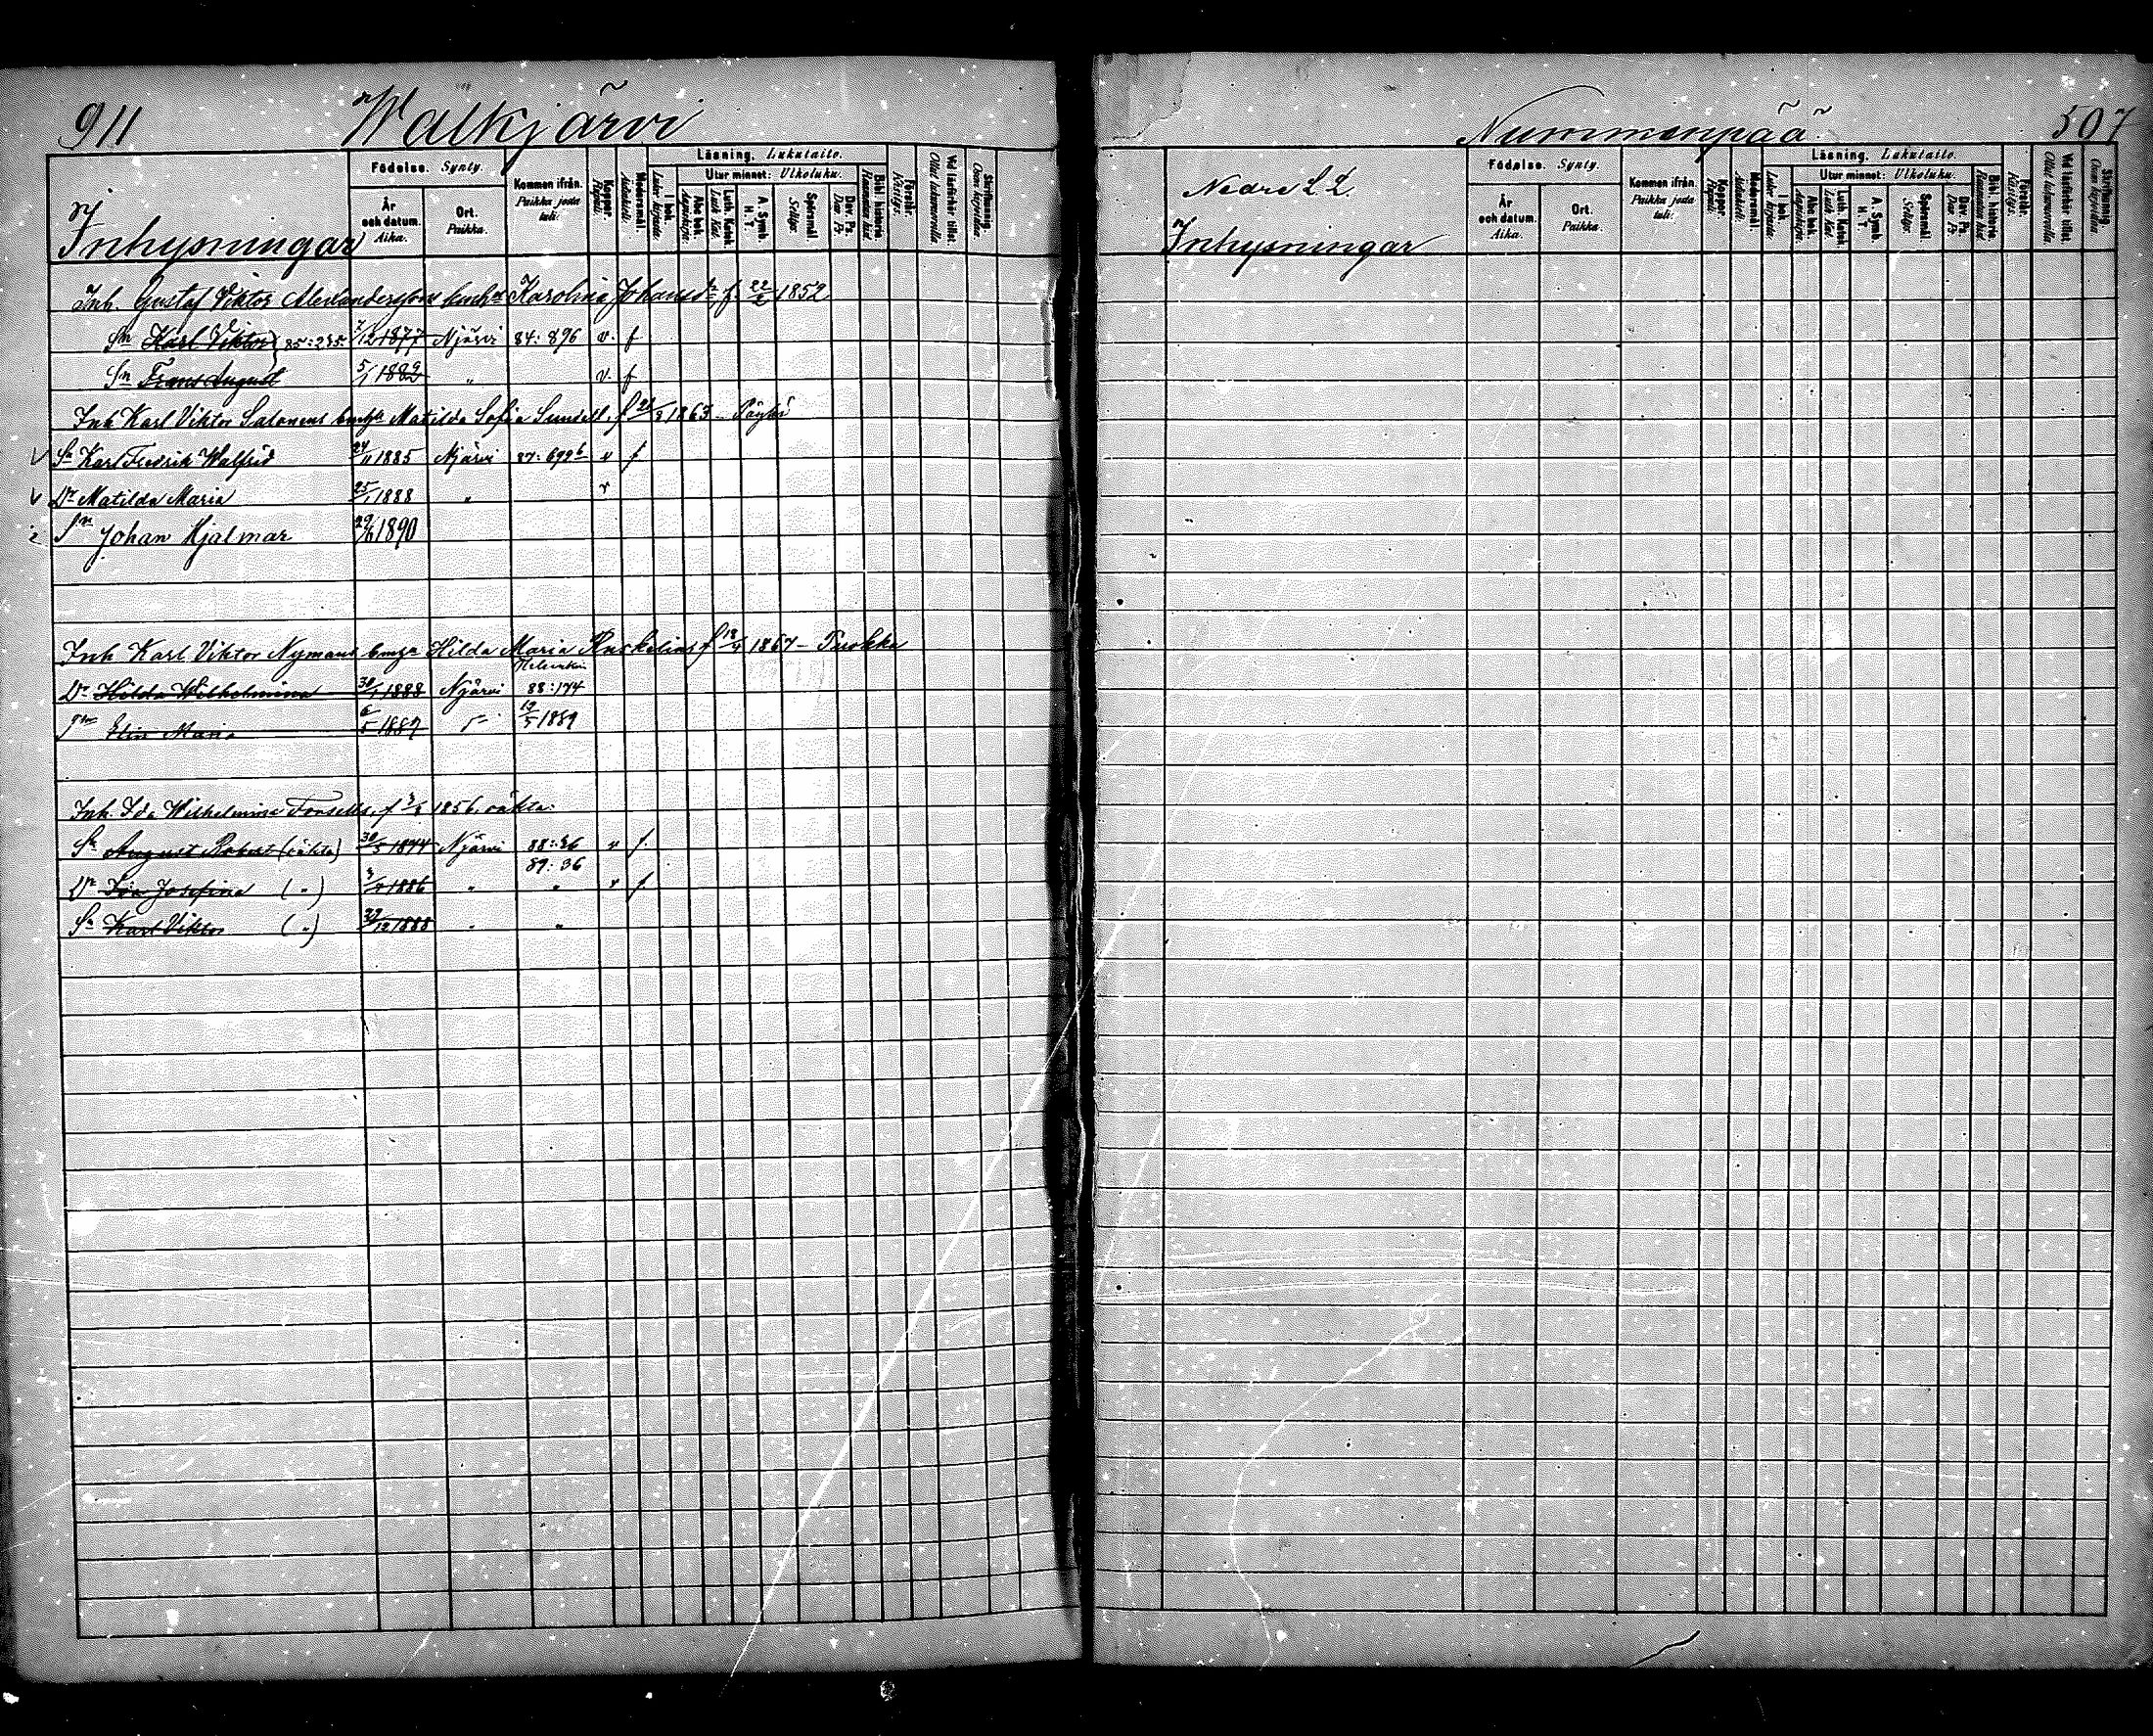 911 Walkjärvi
Födelse. Synty.
Läsning. Lukutaito.
Utur minnet: Ulkoluku.
År och datum. Aika.
Ort. Paikka.
Kommen ifrån. Paikka josta tuli:
Koppor. Rupuli.
Modersmål. Äidinkieli.
I bok. Luku kirjasta.
Abc bok. Aapiskirja.
Luth. Katek. Luth. Kat.
A. Symb. H. T.
Spörsmål. Selitys.
Dav. Ps. Dav. Ps.
Bibl. historia. Raamatun hist.
Förestbr. Käsitys.
Vid läsförhör tillst. Ollut lukuseuroilla.
Skrifkunnig. Osaa kirjoittaa.
Inhysningar
Inh. Gustaf Viktor Alexanderssons Karolina Johansdr, f. 22/2 1852
Sn Karl Viktor 85:235 7/12 1877 Njärvi 84:896 v. f
Sn Frans August 5/1 1882 " v. f
Inh Karl Viktor Salonens Matilda Sofia Sundell, f 1863
v Sn Karl Fredrik Walfrid 24/11 1885 Njärvi 87:699b v f
v Dr Matilda Maria 25/1 1888 " v
Sn Johan Hjalmar 29/6 1890
Inh Karl Viktor Nymans Hilda Maria f 18/4 1867
Helsinki
Dr Hilda Wilhelmina 30/1 1888 Njärvi 88:174
Elin Maria 6/5 1889 19/5 1889
Inh. Ida Wilhelmina Forsells, f 1856, oäkta:
Sn August Robert (oäkta) 30/5 1874 Njärvi 88:36 v f.
89:36
Dr Ida Josefina (") 1886 " " v f
Sn Karl Viktor (") 12 1888 " "
Nummenpää 507
Nedre LL
Inhysningar
Födelse. Synty.
Läsning. Lukutaito.
Utur minnet: Ulkoluku.
År och datum. Aika.
Ort. Paikka.
Kommen ifrån. Paikka josta tuli:
Koppor. Rupuli.
Modersmål. Äidinkieli.
I bok. Luku kirjasta.
Abc bok. Aapiskirja.
Luth. Katek. Luth. Kat.
A. Symb. H. T.
Spörsmål. Selitys.
Dav. Ps. Dav. Ps.
Bibl. historia. Raamatun hist.
Förestbr. Käsitys.
Vid läsförhör tillst. Ollut lukuseuroilla.
Skrifkunnig. Osaa kirjoittaa.